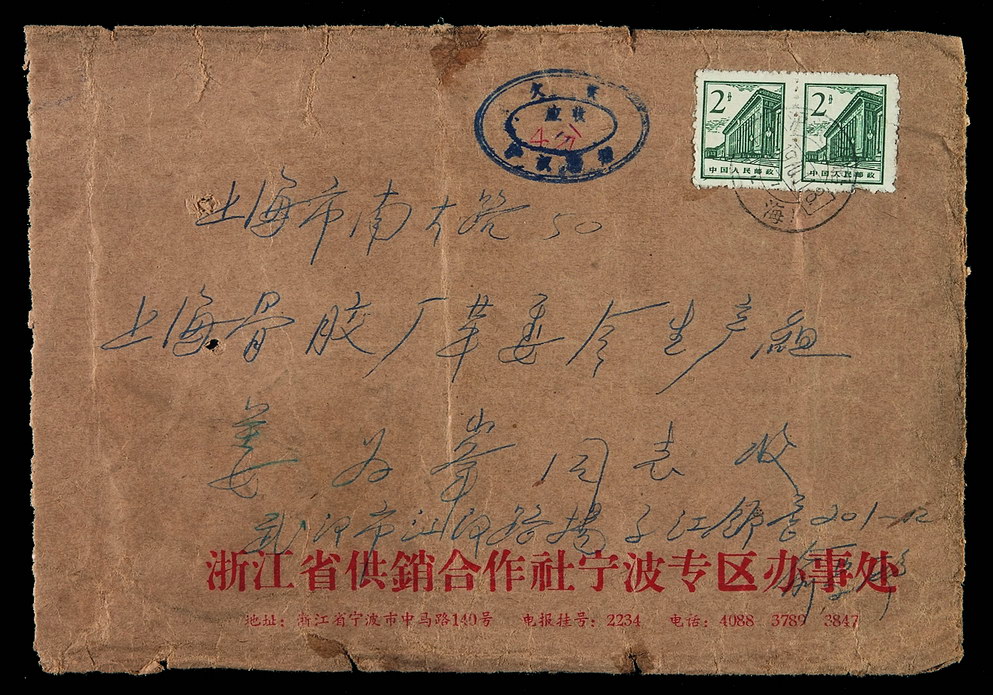 欠资
应收
4分
2分 2分
中国人民邮政 中国人民邮政
海
上海市南大路50
上海骨胶厂革委会生产组
姜为举同志收
武汉市江汉路扬子江饭店201-12
浙江省供銷合作社宁波专区办事处
地址：浙江省宁波市中马路140号 电报挂号：2234 电话：4088 3789 3847